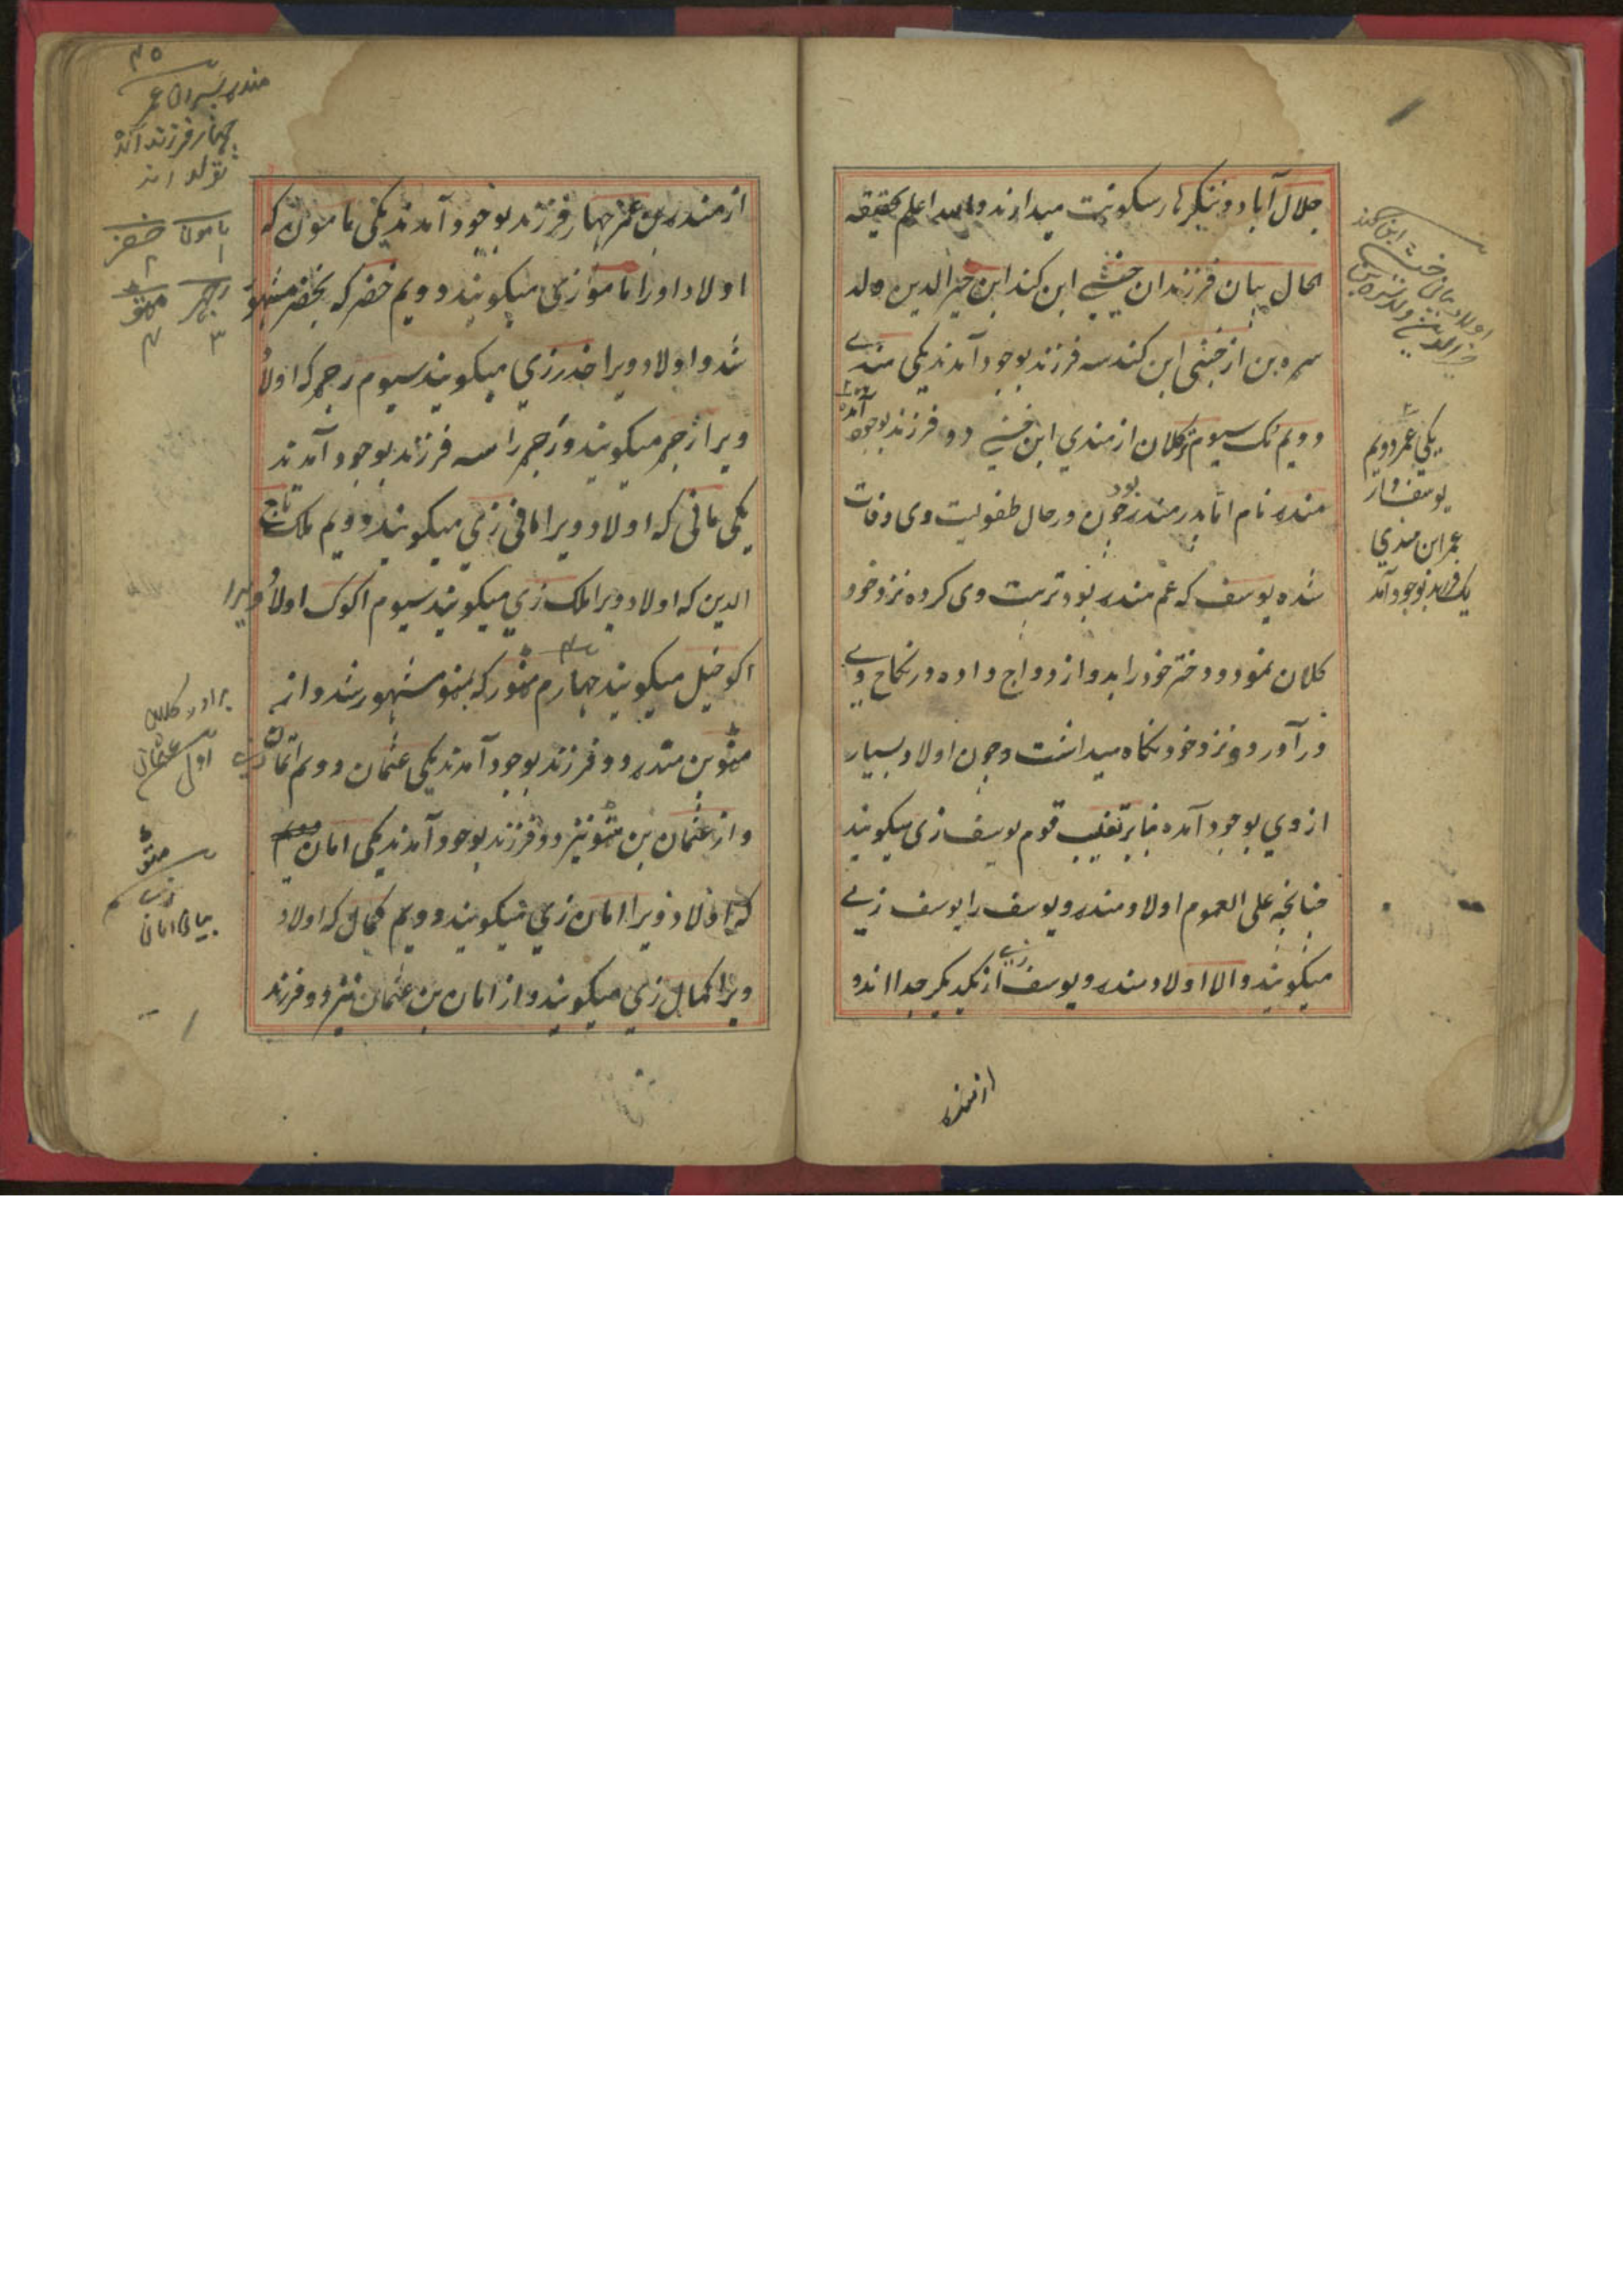 جلال آباد و ننگرهار سکونت میدارند والله اعلم بحقیقه
الحال بیان فرزندان خښی ابن کند ابن خیرالدین ولد
سره بن از خښی ابن کند سه فرزند بوجود آمدند یکی مندی
دویم مک سیوم ترکلان از مندی ابن خښی دو فرزند بوجود آمد
مندر نام اما پدر مندر چون بود در حال طفولیت وی وفات
شده یوسف که عم مندر بود تربیت وی کرده نزد خود
کلان نمود و دختر خود را بدو ازدواج داده در نکاح وی
در آورد و نزد خود نگاه میداشت و چون اولاد بسیار
از وی بوجود آمده بنابر تغلیب قوم یوسف زی میگویند
چنانچه علی العموم اولاد مندر و یوسف را یوسف زی
میگویند و الا اولاد مندر و یوسف زی از یکدیگر جدا اند و
از مندر
اولاد خښی ابن کند
یکی عمر دویم
یوسف و از
عمر ابن مندی
یک فرزند بوجود آمد
از مندر بن عمر چهار فرزند بوجود آمدند یکی مامون که
اولاد او را ماموزی میگویند دویم خضر که بخضر مشهور
شد و اولاد ویرا خدرزی میگویند سیوم رجر که اولاد
ویرا رجر میگویند و رجر را سه فرزند بوجود آمدند
یکی مانی که اولاد ویرا مانی زی میگویند دویم ملک تاج
الدین که اولاد ویرا ملک زی میگویند سیوم اکوک اولاد ویرا
اکوخیل میگویند چهارم منور که بمنو مشهور شد و از
منو بن مندر دو فرزند بوجود آمدند یکی عثمان دویم اتمان زی
و از عثمان بن منو نیز دو فرزند بوجود آمدند یکی امان
که اولاد ویرا امان زی میگویند دویم کمال که اولاد
ویرا کمال زی میگویند و از امان بن عثمان نیز دو فرزند
۴۵
مندر پسران عمر
چهار فرزند آند
تولد اند
مامون خضر
۱ ۲
رجر منو
۳ ۴
برادر کلان
اول عثمان
منو
زی
بیان امان